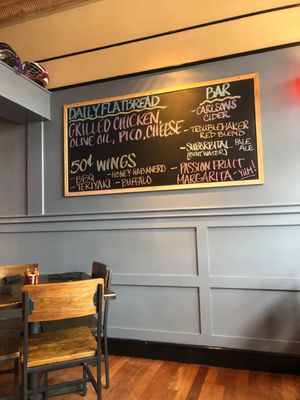 DAILY FLATBREAD
GRILLED CHICKEN,
OLIVE OIL, PICO, CHEESE
50¢ WINGS
- BBQ
- HONEY HABANERO
- TERIYAKI
- BUFFALO
BAR
- CARLSONS
CIDER
- TROUBLEMAKER
RED BLEND
- SUBURBITAN PALE
(BENT WATER) ALE
- PASSION FRUIT
MARGARITA -YUM!